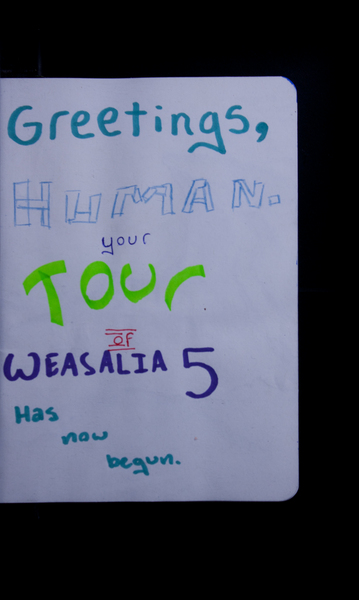 Greetings,
HUMAN.
your
Tour
of
WEASALIA 5
Has
now
begun.